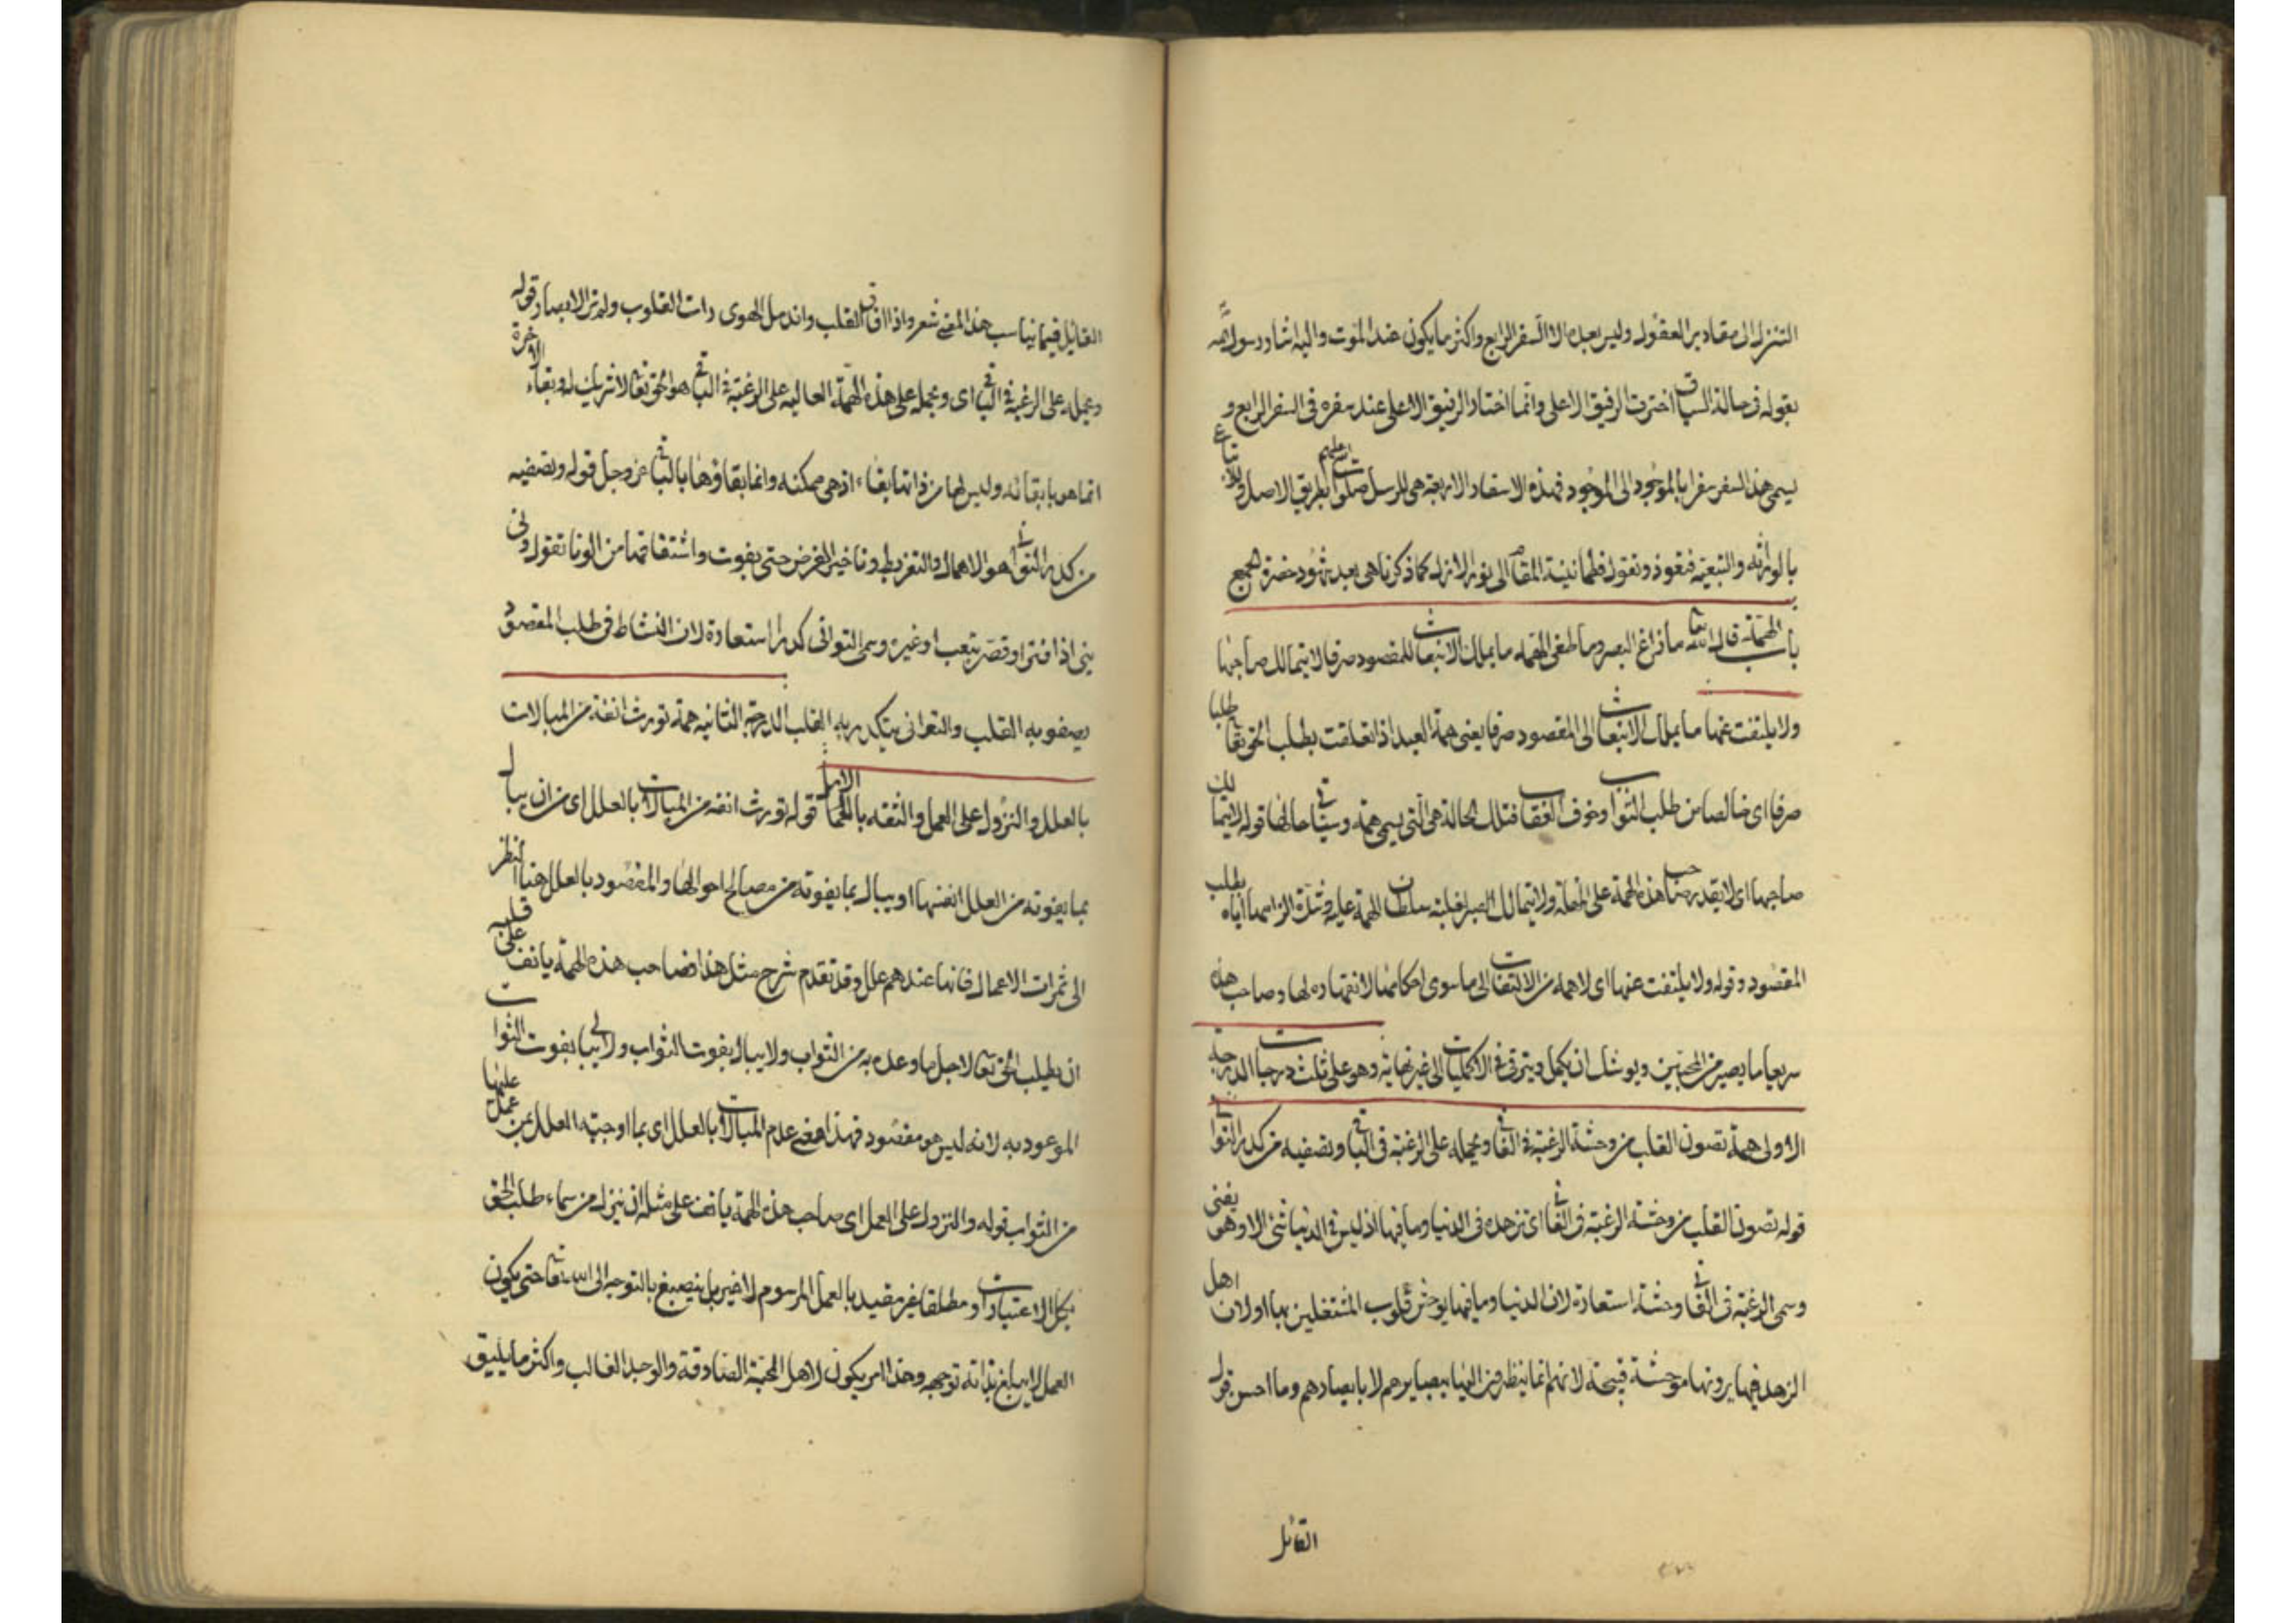 التنزل الى مقادير العقول وليس بعده الا السفر الرابع واكثر ما يكون عند الموت واليه اشار رسول الله
بقوله فى حالة السياق اخترت الرفيق الاعلى وانما اختار الرفيق الاعلى عند سفره فى السفر الرابع و
يسمى هذا السفر سفرا بالموجود الى الموجود فهذه الاسفار الاربعة هى للرسل صلوات الله عليهم بطريق الاصل وللاتباع
بالوراثه والتبعيّة فنعود ونقول فطمانينة المقام الى نور الازل كما ذكرنا هى بعد شهود حضرة الجمع
باب الهمّة قال الله تعا ما زاغ البصر وما طغى الهمّه ما يملك الانبعاث للمقصود صرفا لا يتمالك صاحبها
ولا يلتفت عنها ما يملك الانبعاث الى المقصود صرفا يعنى همة العبد اذا تعلقت بطلب الحق تعا طلبا
صرفا اى خالصا من طلب الثواب وخوف العقاب فتلك الحالة هى الّتى يسمى همة وسياتى حالها قوله لا يتمالك
صاحبها اى لا يقدر صاحب هذه الهمّة على المهلة ولا يتمالك الصبر لغلبة سلطان الهمّة عليه وشدّة الزامها اياه بطلب
المقصود وقوله ولا يلتفت عنها اى لا همه من الالتفات الى ما سوى احكامها لانقهاره لها وصاحب هذه
سريعا ما يصير من المحبّين ويوشك ان يكمل ويترقى فى الاكمليات الى غير نهاية وهو على ثلث درجات الدرجة
الاولى همة تصون القلب من وحشة الرغبة فى الفانى ويحمله على الرغبة فى الباقى وتصفيه من كدر التوانى
قوله تصون القلب من وحشة الرغبة فى الفانى اى تزهده فى الدنيا وما فيها اذ ليس فى الدنيا شئ الا وهو يفنى
وسمى الرغبة فى الفانى وحشة استعارة لان الدنيا وما فيها يوحش قلوب المشتغلين بها اولان اهل
الزهد فيها يرونها موحشة قبيحة لانهم انما ينظرون اليها ببصايرهم لا بابصارهم وما احسن قول
القائل
القائل فيما يناسب هذا المعنى شعر واذا افاق القلب واندمل الهوى رات القلوب ولم تر الابصار قوله
ويحمله على الرغبة فى الباقى اى ويحمله على هذه الهمّة العاليه على الرغبة فى الباقى هو الحق تعا لا شريك له وبقاء الاخرة
انما هو بابقائه وليس لها من ذاتها بقاء اذ هى ممكنه وانما بقاؤها بالباقى عز وجل قوله وتصفيه
من كدر التوانى هو الاهمال والتفريط وتاخير الغرض حتى يفوت واشتقاقها من الونا تقول ونى
ينى اذا فتر او قصّر بتعب او غيره وسمى التوانى كدرا استعارة لان النشاط فى طلب المقصود
يصفو به القلب والتوانى يتكدر به القلب الدرجة الثانيه همة تورث انفة من المبالات
بالعلل والنزول على العمل والثقه بالامل قوله تورث انفة من المبالات بالعلل اى من ان يبال
بما يفوته من العلل انفسها او يبال بما يفوته من مصالح احوالها والمقصود بالعلل هنا النظر
الى ثمرات الاعمال فانها عندهم علل وقد تقدم شرح مثل هذا فصاحب هذه الهمّة يانف على قلبه
ان يطلب الحق تعا لاجل ما وعد به من الثواب ولا يبال بفوت الثواب ولا يبالى بفوت الثواب
الموعود به لانه ليس هو مقصود فهذا معنى عدم المبالات بالعلل اى بما اوجبته العلل عمن عمل عليها
من الثواب قوله والنزول على العمل اى صاحب هذه الهمّة يانف على مثله ان ينزل من سماء طلب الحق
بكل الاعتبارات او مطلقا غير مقيد بالعمل المرسوم لا غير بل ينصبغ بالتوجه الى الله تعا حتى يكون
العمل لا يبلغ بذاته توجهه وهذا امر يكون لاهل المحبّة الصادقة والوجد الغالب واكثر ما يليق